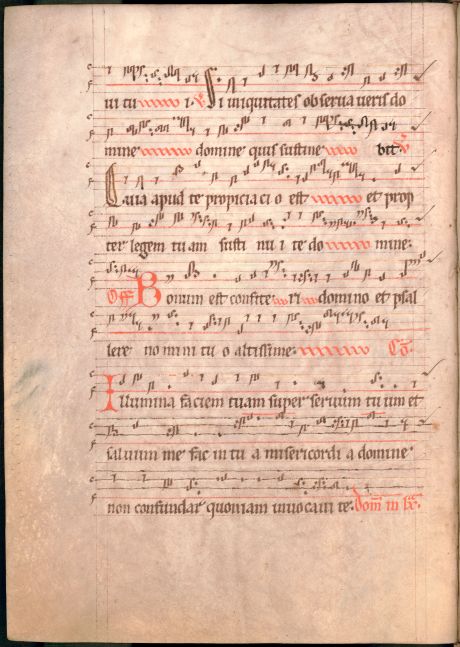 ui tu i. V Si iniquitates obserua ueris do
mine domine quis sustine bit: V
Quia apud te propiciaci o est et prop
ter legem tu am susti nu i te do mine:
Off Bonum est confite ri domino et psal
lere nomini tu o altissime: Co
Illumina faciem tuam super seruum tuum et
saluum me fac in tu a misericordi a domine
non confundar quoniam inuocaui te: Dom in lx